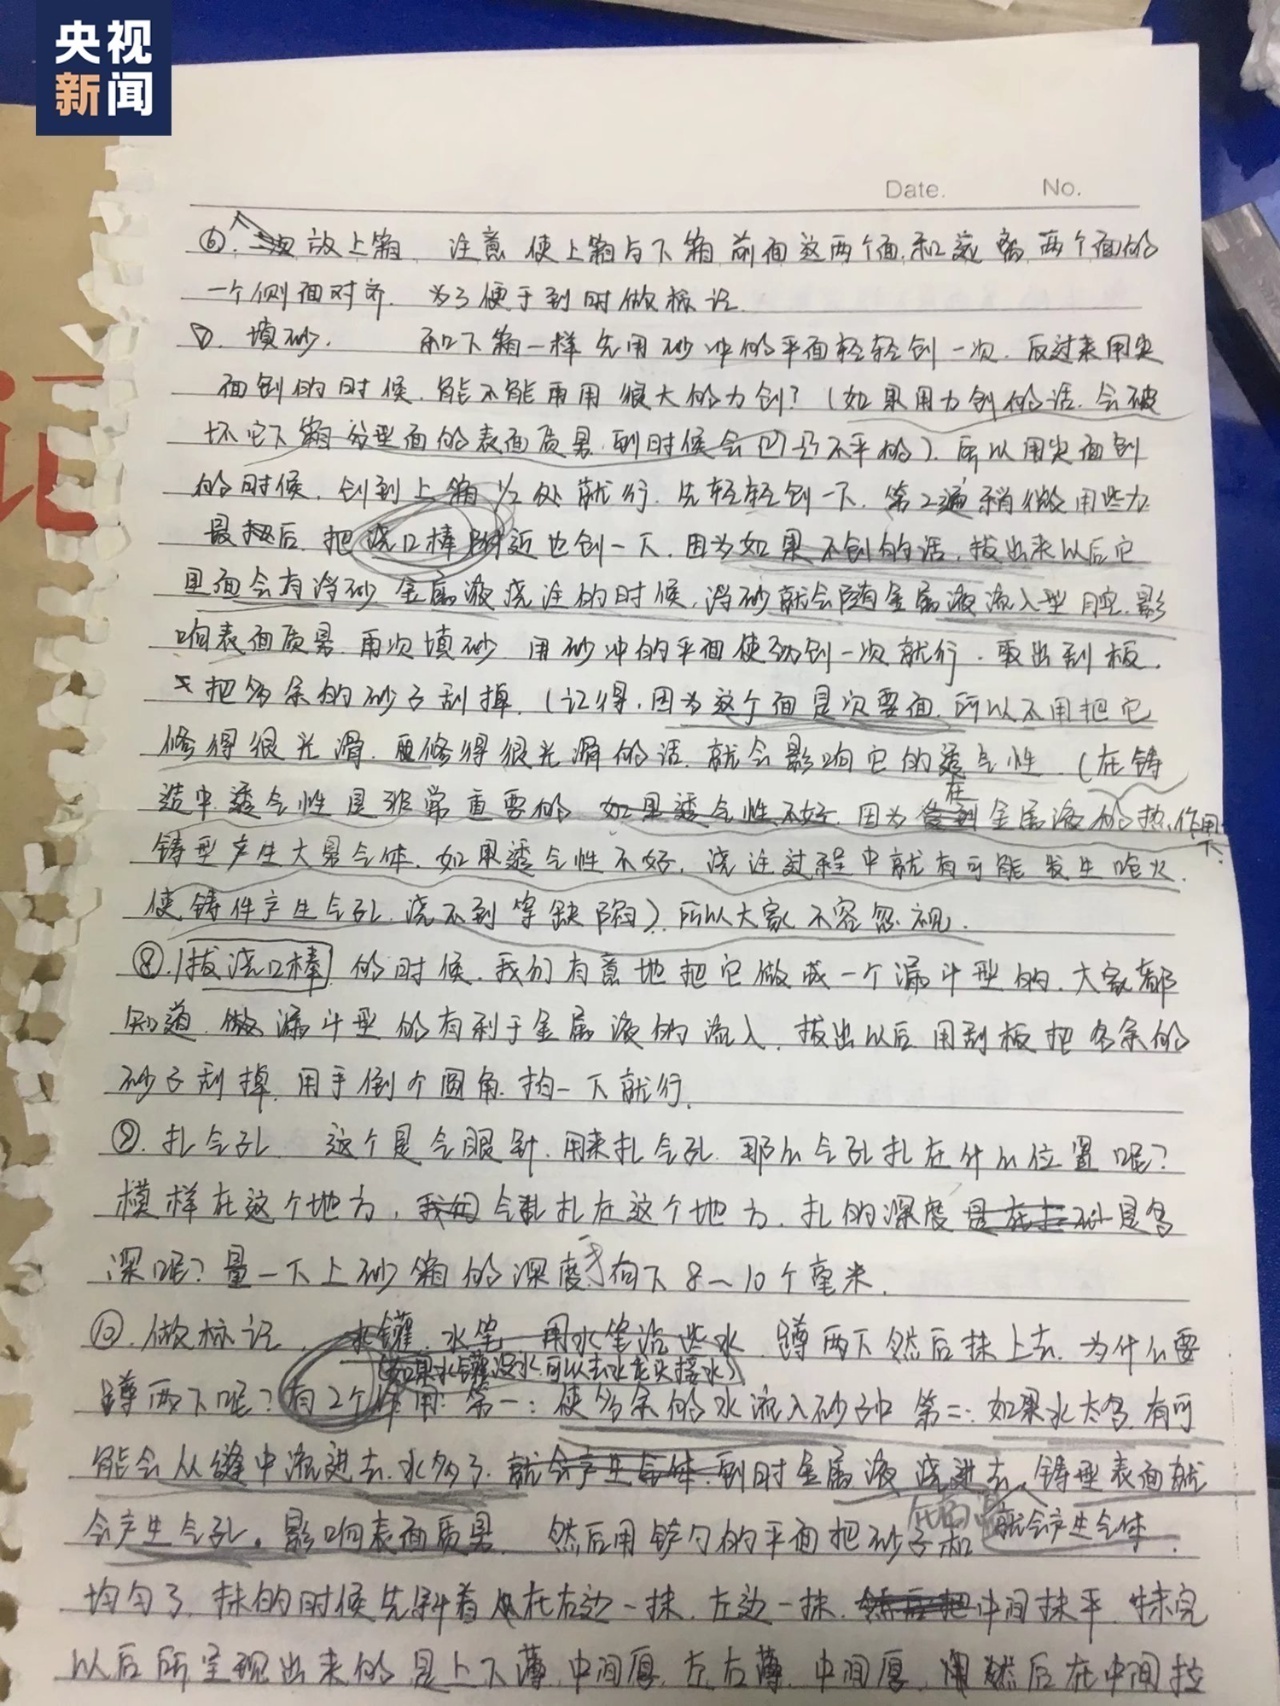 央视
新闻
Date. No.
⑥. 放上箱. 注意 使上箱与下箱 前面这两个面.和远离 两个面的
一个侧面对齐. 为了便于到时做标记.
⑦. 填砂. 和下箱一样先用砂冲的平面轻轻创一次. 反过来用尖
面创的时候. 能不能再用很大的力创?(如果用力创的话. 会破
坏它下箱分型面的表面质量.到时候会凹凸不平的). 所以用尖面创
的时候. 创到上箱1/2处就行. 先轻轻创一下. 第2遍稍微用些力
最后. 把浇口棒附近也创一下. 因为如果不创的话. 拔出来以后它
里面会有浮砂 金属液浇注的时候. 浮砂就会随金属液流入型腔.影
响表面质量. 再次填砂. 用砂冲的平面使劲创一次就行. 取出刮板.
把多余的砂子刮掉. (记得. 因为这个面是次要面. 所以不用把它
修得很光滑. 修得很光滑的话. 就会影响它的透气性. (在铸
造中.透气性是非常重要的 如果透气性不好. 因为在金属液的热作用下
铸型产生大量气体. 如果透气性不好. 浇注过程中就有可能发生呛火.
使铸件产生气孔. 浇不到等缺陷). 所以大家不容忽视.
⑧. 拔浇口棒 的时候. 我们有意地把它做成一个漏斗型的. 大家都
知道. 做漏斗型的有利于金属液的流入. 拔出以后用刮板把多余的
砂子刮掉. 用手倒个圆角. 拍一下就行.
⑨. 扎气孔. 这个是气眼针. 用来扎气孔. 那么气孔扎在什么位置呢?
模样在这个地方. 气孔扎在这个地方. 扎的深度 是多
深呢? 量一下上砂箱的深度 向下8~10个毫米.
⑩. 做标记. 水罐. 水笔 用水笔沾些水. 蹲两下然后抹上去. 为什么要
(如果水罐没水.可以去水龙头接水)
蹲两下呢? 有2个作用: 第一: 使多余的水流入砂子中 第二: 如果水太多.有可
能会从缝中流进去.水多了. 就会产生气体.到时金属液浇进去. 铸型表面就
就会产生气体.
会产生气孔. 影响表面质量. 然后用铲勺的平面把砂子和
均匀了. 抹的时候先斜着 在右边一抹. 左边一抹. 中间抹平. 抹完
以后所呈现出来的是上下薄.中间厚. 左右薄. 中间厚. 然后在中间拉